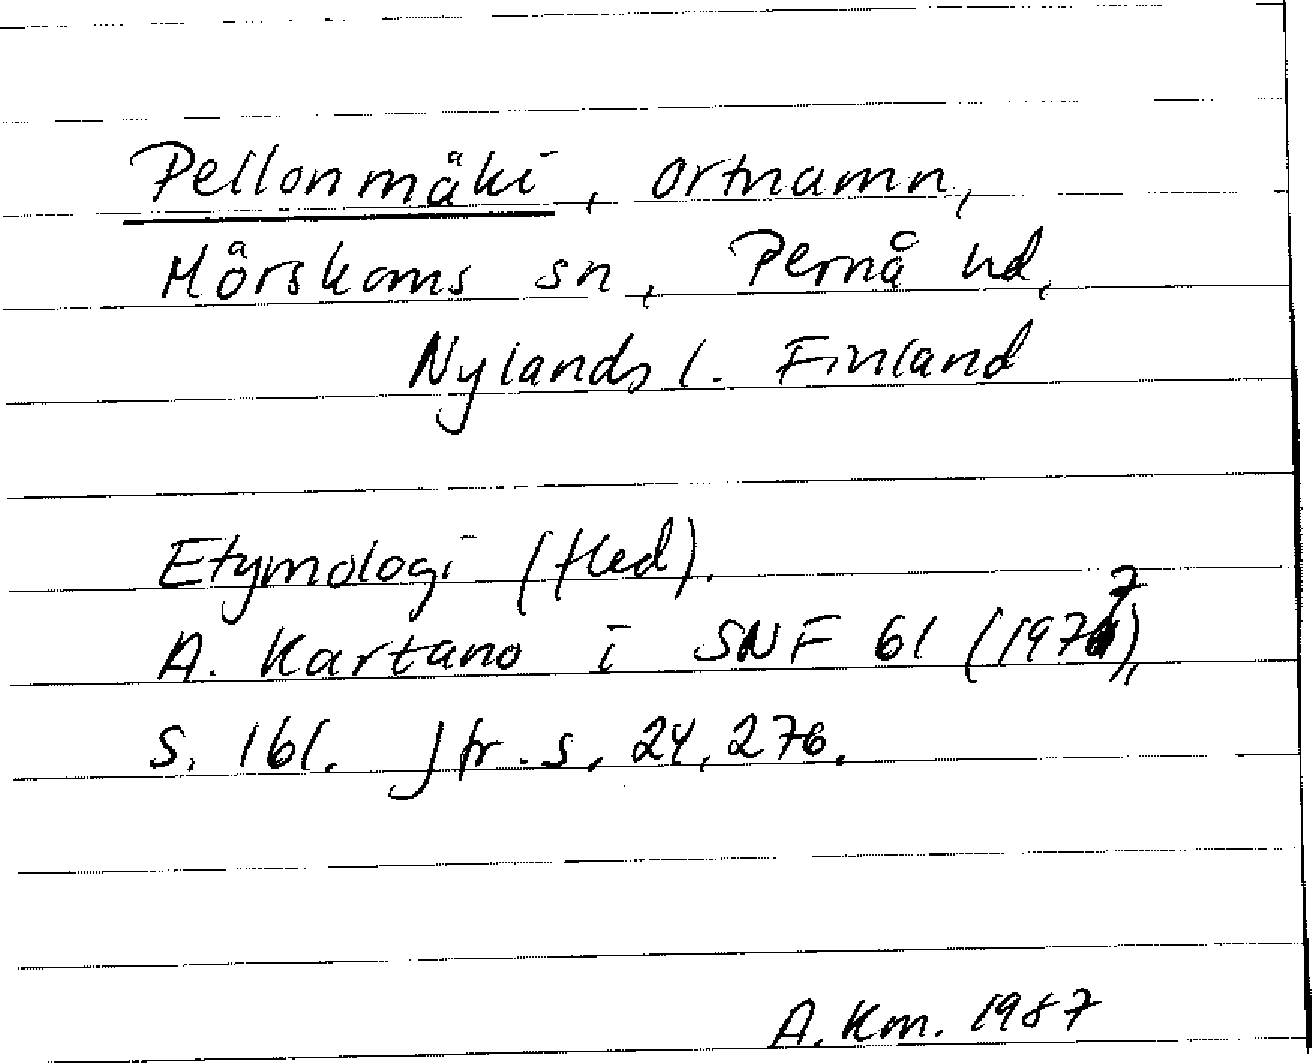 Pellonmäki, ortnamn,
Mörskoms sn, Pernå hd,
Nylands l. Finland
Etymologi (fled).
A. Kartano i SNF 61 (1977),
s. 161. Jfr. s. 24, 276.
A. Km. 1987